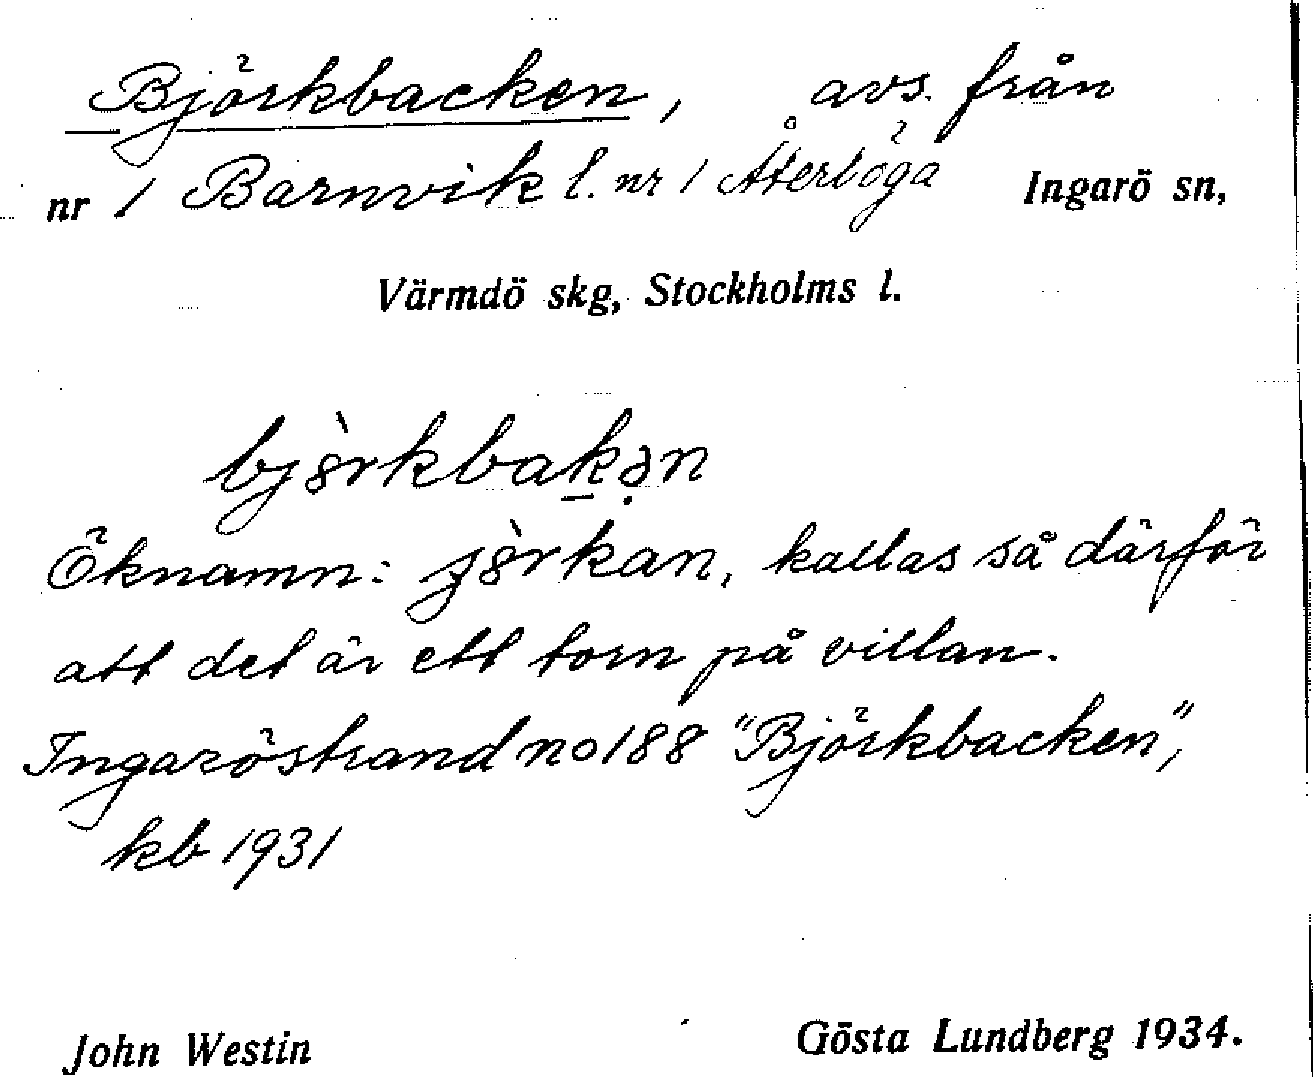 Björkbacken, avs. från
nr 1 Barnvik l. nr 1 Återlöga Ingarö sn,
Värmdö skg, Stockholms l.
Öknamn: kallas så därför
att det är ett torn på villan.
Ingaröstrand no 188 "Björkbacken",
kb 1931
John Westin Gösta Lundberg 1934.